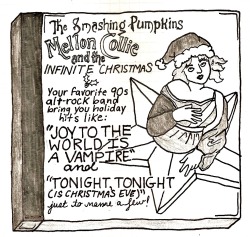 The Smashing Pumpkins
Mellon Collie
and the
INFINITE CHRISTMAS
Your favorite 90s
alt-rock band
bring you holiday
hits like:
"JOY TO THE
WORLD IS
A VAMPIRE"
and
"TONIGHT, TONIGHT
(IS CHRISTMAS EVE)"
just to name a few!